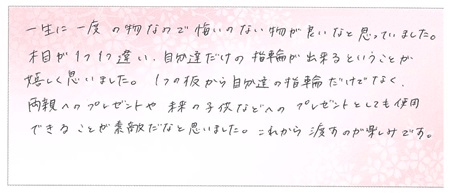 一生に一度の物なので悔いのない物が良いなと思っていました。
木目が1つ1つ違い、自分達だけの指輪が出来るということが
嬉しく思いました。1つの板から自分達の指輪だけでなく、
両親へのプレゼントや未来の子供などへのプレゼントとしても使用
できることが素敵だなと思いました。これから渡すのが楽しみです。